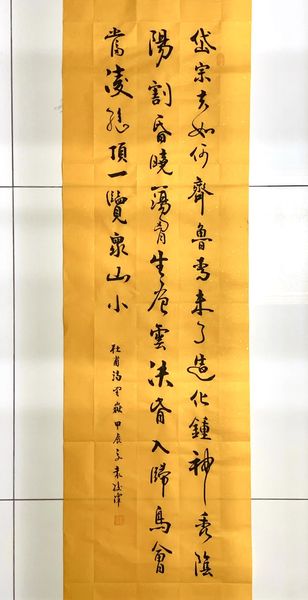 岱宗夫如何齊魯青未了造化鍾神秀陰
陽割昏曉蕩胷生层雲決眥入歸鳥會
當凌絕頂一覽衆山小
杜甫詩望嶽甲辰